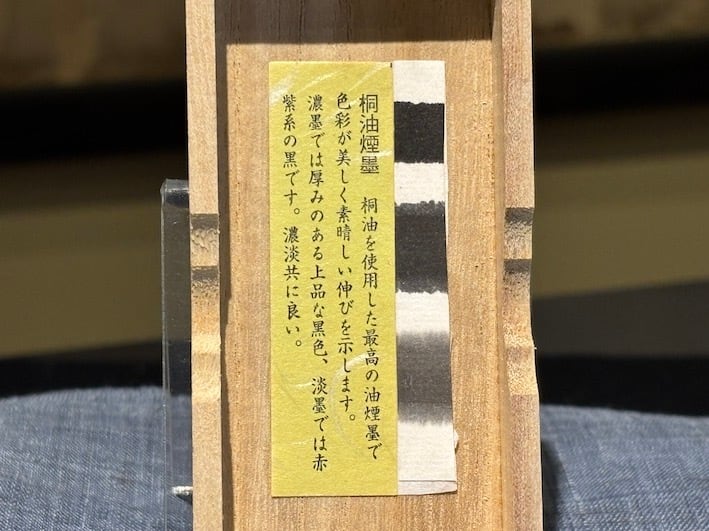 桐油煙墨　桐油を使用した最高の油煙墨で
色彩が美しく素晴しい伸びを示します。
濃墨では厚みのある上品な黒色、淡墨では赤
紫系の黒です。濃淡共に良い。